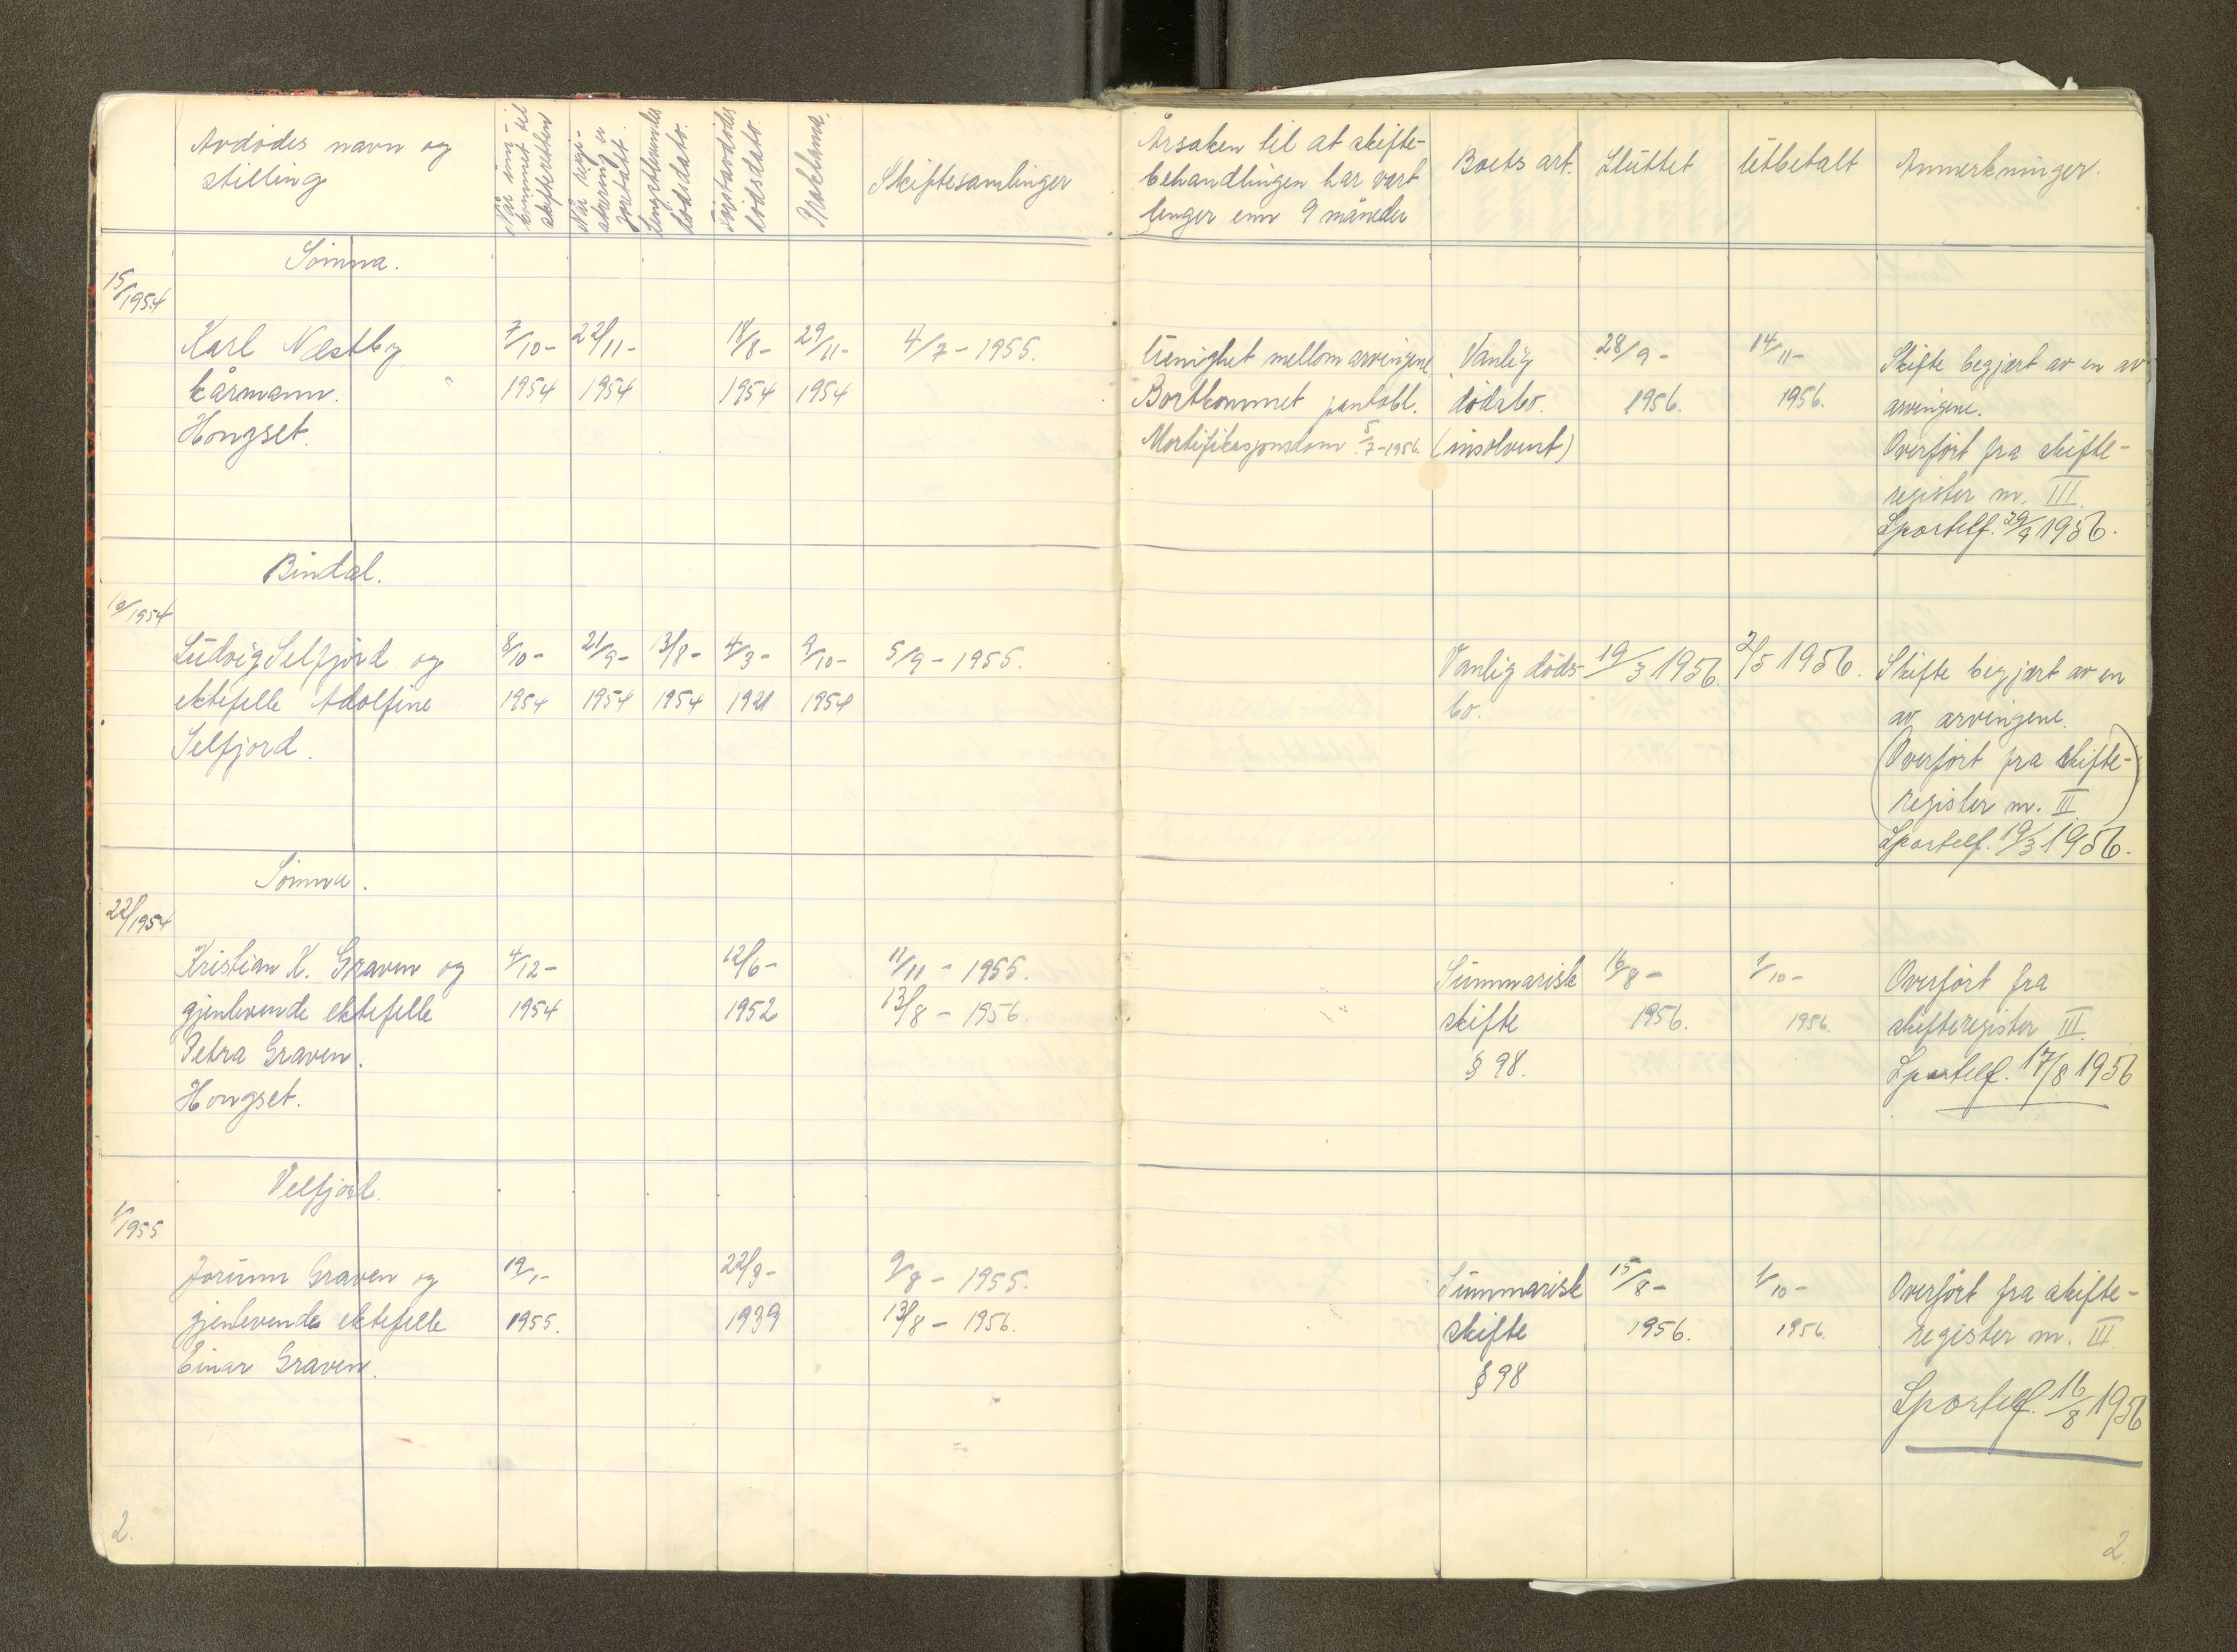 Avdødes navn og
stilling
Når inn-
kommet til
skifteretten
Når regi-
strering er
foretatt.
Lengstlevendes
dødsdato.
Førstavdødes
dødsdato.
Proklama.
Skiftesamlinger
Årsaken til at skifte-
behandlingen har vart
lenger enn 9 måneder
Boets art.
Sluttet
Utbetalt
Anmerkninger.
Sømna.
15/1954
Karl Næstby
kårmann.
Hongset.
7/10-
1954
22/11-
1954
18/8-
1954
29/11-
1954
4/7 - 1955.
Uenighet mellom arvingene
Bortkommet pantobl.
Mortifikasjonsdom 5/7-1956.
Vanlig
dødsbo.
(insolvent)
28/9 -
1956.
14/11-
1956.
Skifte begjært av en av
arvingene.
Overført fra skifte-
register nr. III.
Sportelf. 29/9 1956.
Bindal.
19/1954
Ludvig Selfjord og
ektefelle Adolfine
Selfjord.
8/10-
1954
21/9-
1954
13/8-
1954
4/3-
1921
9/10-
1954
5/9 - 1955.
Vanlig døds-
bo.
19/3 1956.
2/5 1956.
Skifte begjært av en
av arvingene.
(Overført fra skifte-
register nr. III)
Sportelf. 19/3 1956.
Sømna.
22/1954
Kristian K. Graven og
gjenlevende ektefelle
Petra Graven.
Hongset.
4/12-
1954
12/6-
1952
11/11 - 1955.
13/8 - 1956.
Summarisk
skifte
§ 98.
16/8 -
1956.
1/10-
1956.
Overført fra
skifteregister III.
Sportelf. 17/8 1956
Velfjord.
1/1955
Jorunn Graven og
gjenlevende ektefelle
Einar Graven.
19/1-
1955.
22/9-
1939
9/8 - 1955.
13/8 - 1956.
Summarisk
skifte
§ 98
15/8-
1956.
1/10-
1956.
Overført fra skifte-
register nr. III.
Sportelf. 16/8 1956
2.
2.